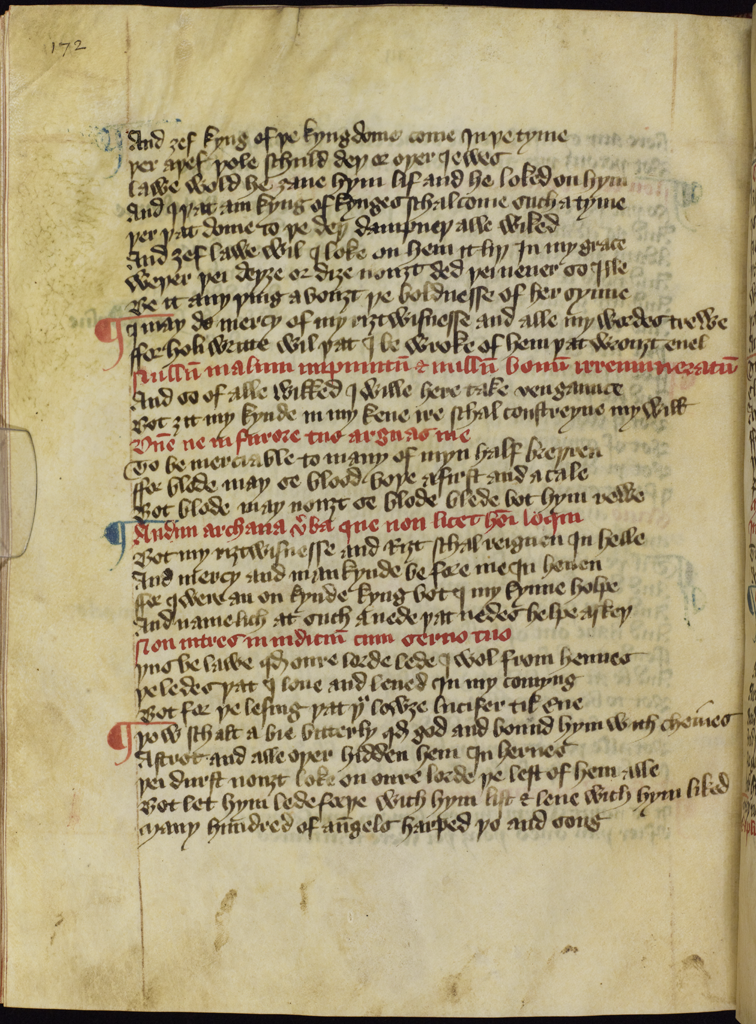 172
And ȝef kyng of þe kyngdome come In þe tyme
þer a þef þole schuld dey or oþer Iewes
Lawe wold he ȝaue hym lif and he loked on hym
And I þat am kyng of kynges schal come such a tyme
þer þat dome to þe deþ dampneþ alle wiked
And ȝef lawe wil I loke on hem it liþ In my grace
Weþer þei deyȝe or diȝe nouȝt ded þei neuer so Ille
Be it any þing abouȝt þe boldnesse of her synne
I may do mercy of my riȝtwisnesse and alle my wordes trewe
ffor holi write wil þat I be wroke of hem þat wrouȝt euel
Nullū malum inpunitū & nullū bonū irremuneratū
And so of alle wikked I wille here take vengaunce
Bot ȝit my kynde in my kene ire schal constreyne my will
Dn̄e ne in furore tuo arguas me
To be merciable to many of myn half breþren
ffor blode may se blood boþe afirst and acale
Bot blode may nouȝt se blode blede bot hym rewe
Audiui archana v̄ba que non licet hōi loqui
Bot my riȝtwisnesse and Riȝt schal reignen In helle
And mercy and mankynde be fore me In heuen
ffor I were an on kynde kyng bot I my kynne holpe
And namelich at such a nede þat nedes helpe askeþ
Non intres in iudiciū cum seruo tuo
þus be lawe qd oure lorde lede I wol from hennes
þe ledes þat I loue and leued In my comyng
Bot for þe lesing þat þu lowȝe lucifer til eue
þow schalt a bie bitterly qd god and bonud hym with cheines
Astrot and alle oþer hidden hem In hernes
þei durst nouȝt loke on oure lorde þe lest of hem alle
Bot let hym lede forþe with hym list & leue with hym liked
Many hundred of angels harped þo and song